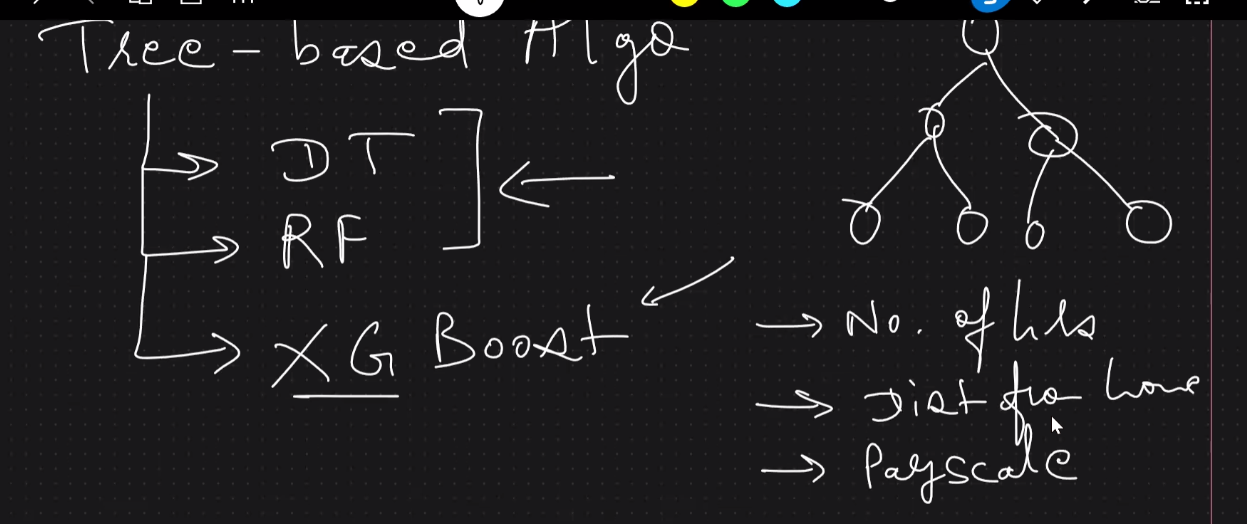 Tree-based Algo
DT
RF
XG Boost
No. of hls
Dist fro home
Payscale